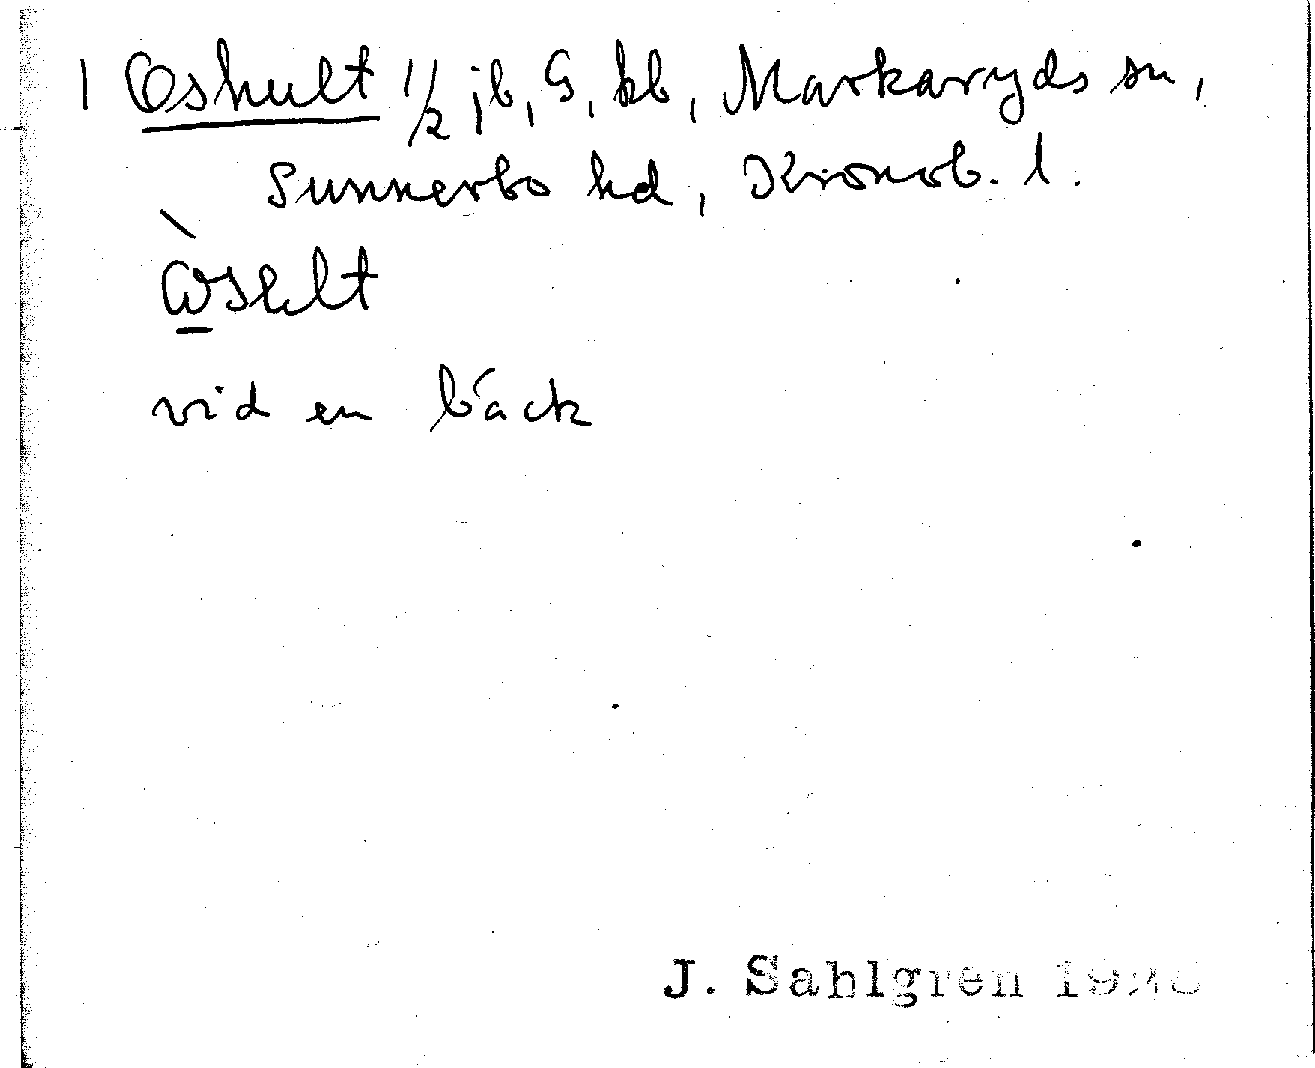 1 Oshult 1/2 jb, G, kb, Markaryds sn,
Sunnerbo hd, Kronob. l.
vid en bäck
J. Sahlgren